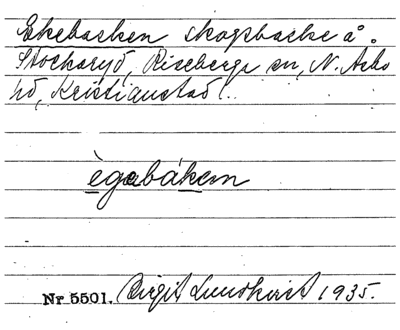 Ekebacken skogsbacke å
Stockaryd, Riseberga sn, N. Åsbo
hd, Kristianstad l.
ègabákem
Nr 5501. Birgit Lundkvist 1935.